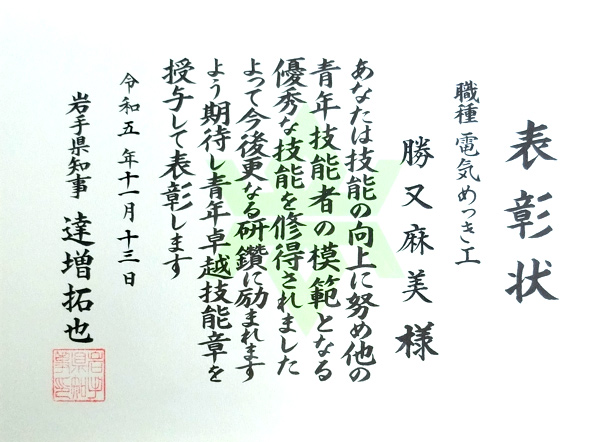 表彰状
職種 電気めっき工
勝又麻美 様
あなたは技能の向上に努め他の
青年技能者の模範となる
優秀な技能を修得されました
よって今後更なる研鑽に励まれます
よう期待し青年卓越技能章を
授与して表彰します
令和五年十一月十三日
岩手県知事 達増拓也